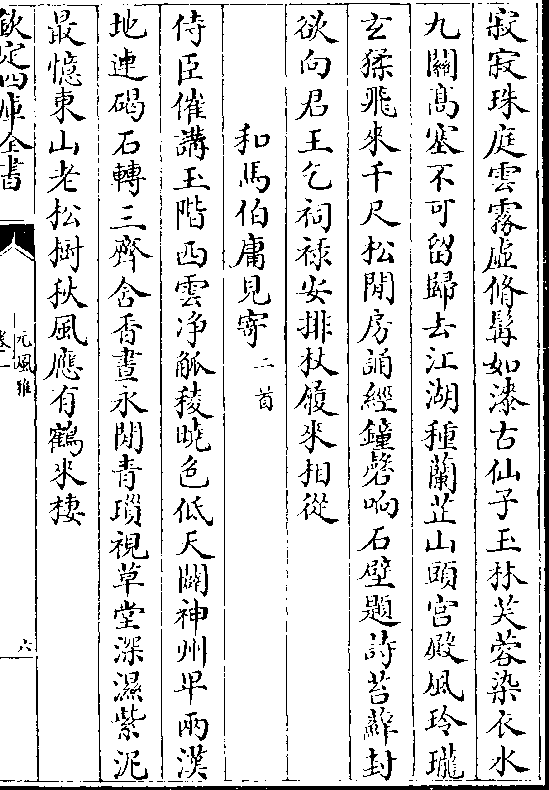 寂寂珠庭雲霧虛脩髯如漆古仙子玉林芙蓉染衣水
九關髙塞不可留歸去江湖種蘭芷山頭宫殿風玲瓏
玄猱飛來千尺松閒房誦經鐘磬响石壁題詩苔蘚封
欲向君王乞祠禄安排杖屨来相從
和馬伯庸見寄二首
侍臣催講玉階西雲净觚稜曉色低天闢神州畢兩漢
地連碣石轉三齊含香晝永閒青瑣視草堂深濕紫泥
最憶東山老松樹秋風應有鶴来棲
欽定四庫全書
元風雅
卷一
六